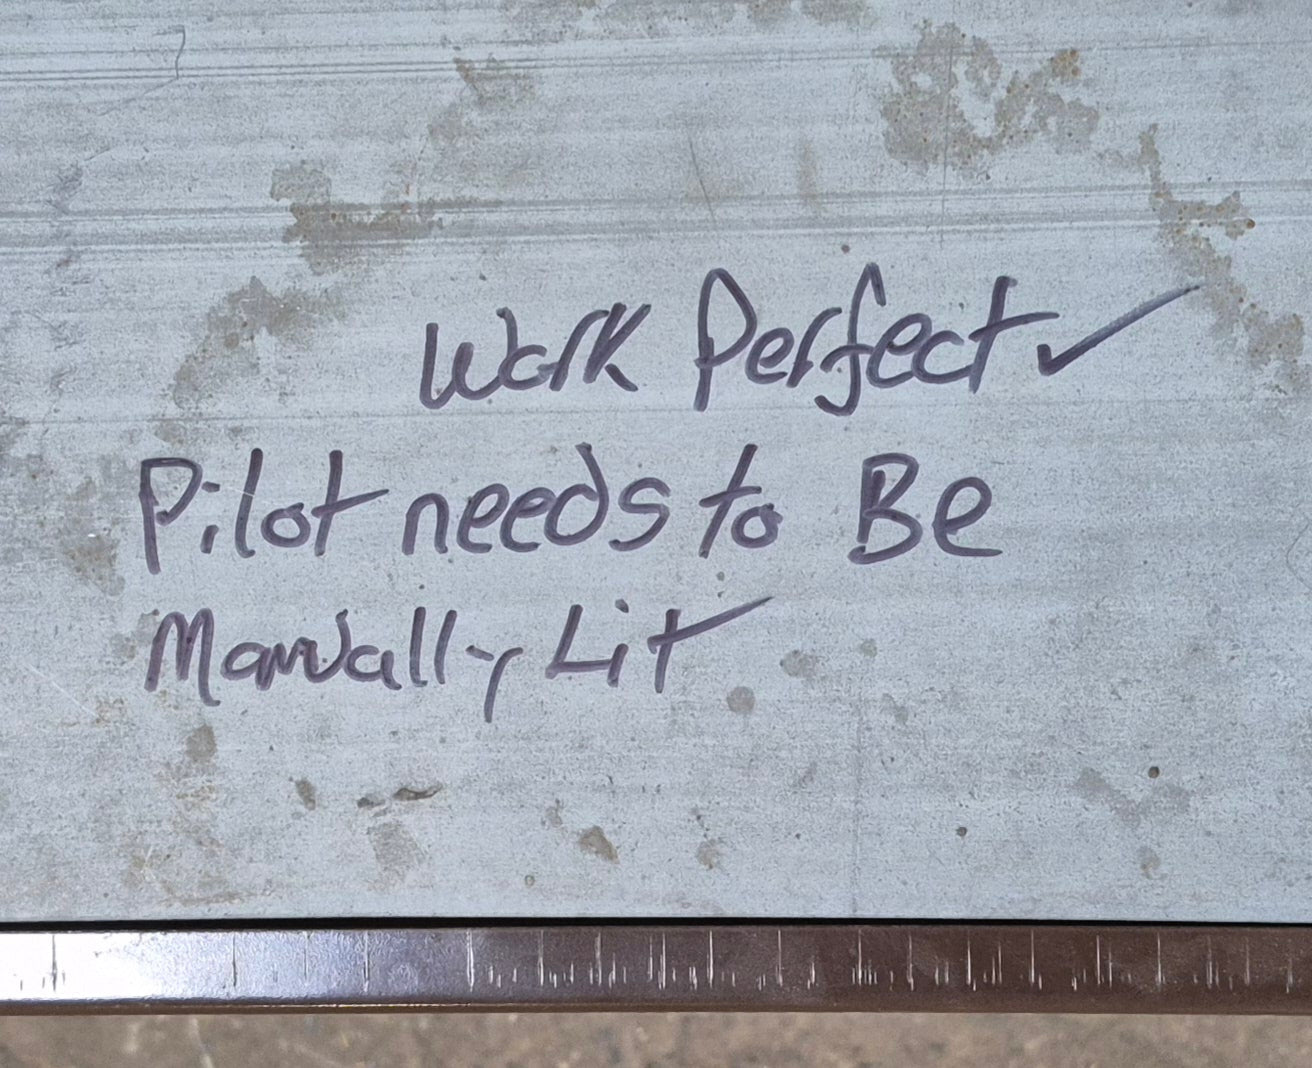 Work Perfect ✓
Pilot needs to Be
Manually Lit